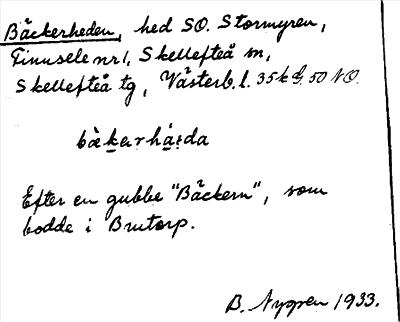 Bäckerheden, hed SO. Stormyren,
Finnsele nr 1, Skellefteå sn,
Skellefteå tg, Västerb. l. 35 k d. 50 NO.
bèkerhàṛda
Efter en gubbe "Bäckern", som
bodde i Brutorp.
B. Nyppen 1933.